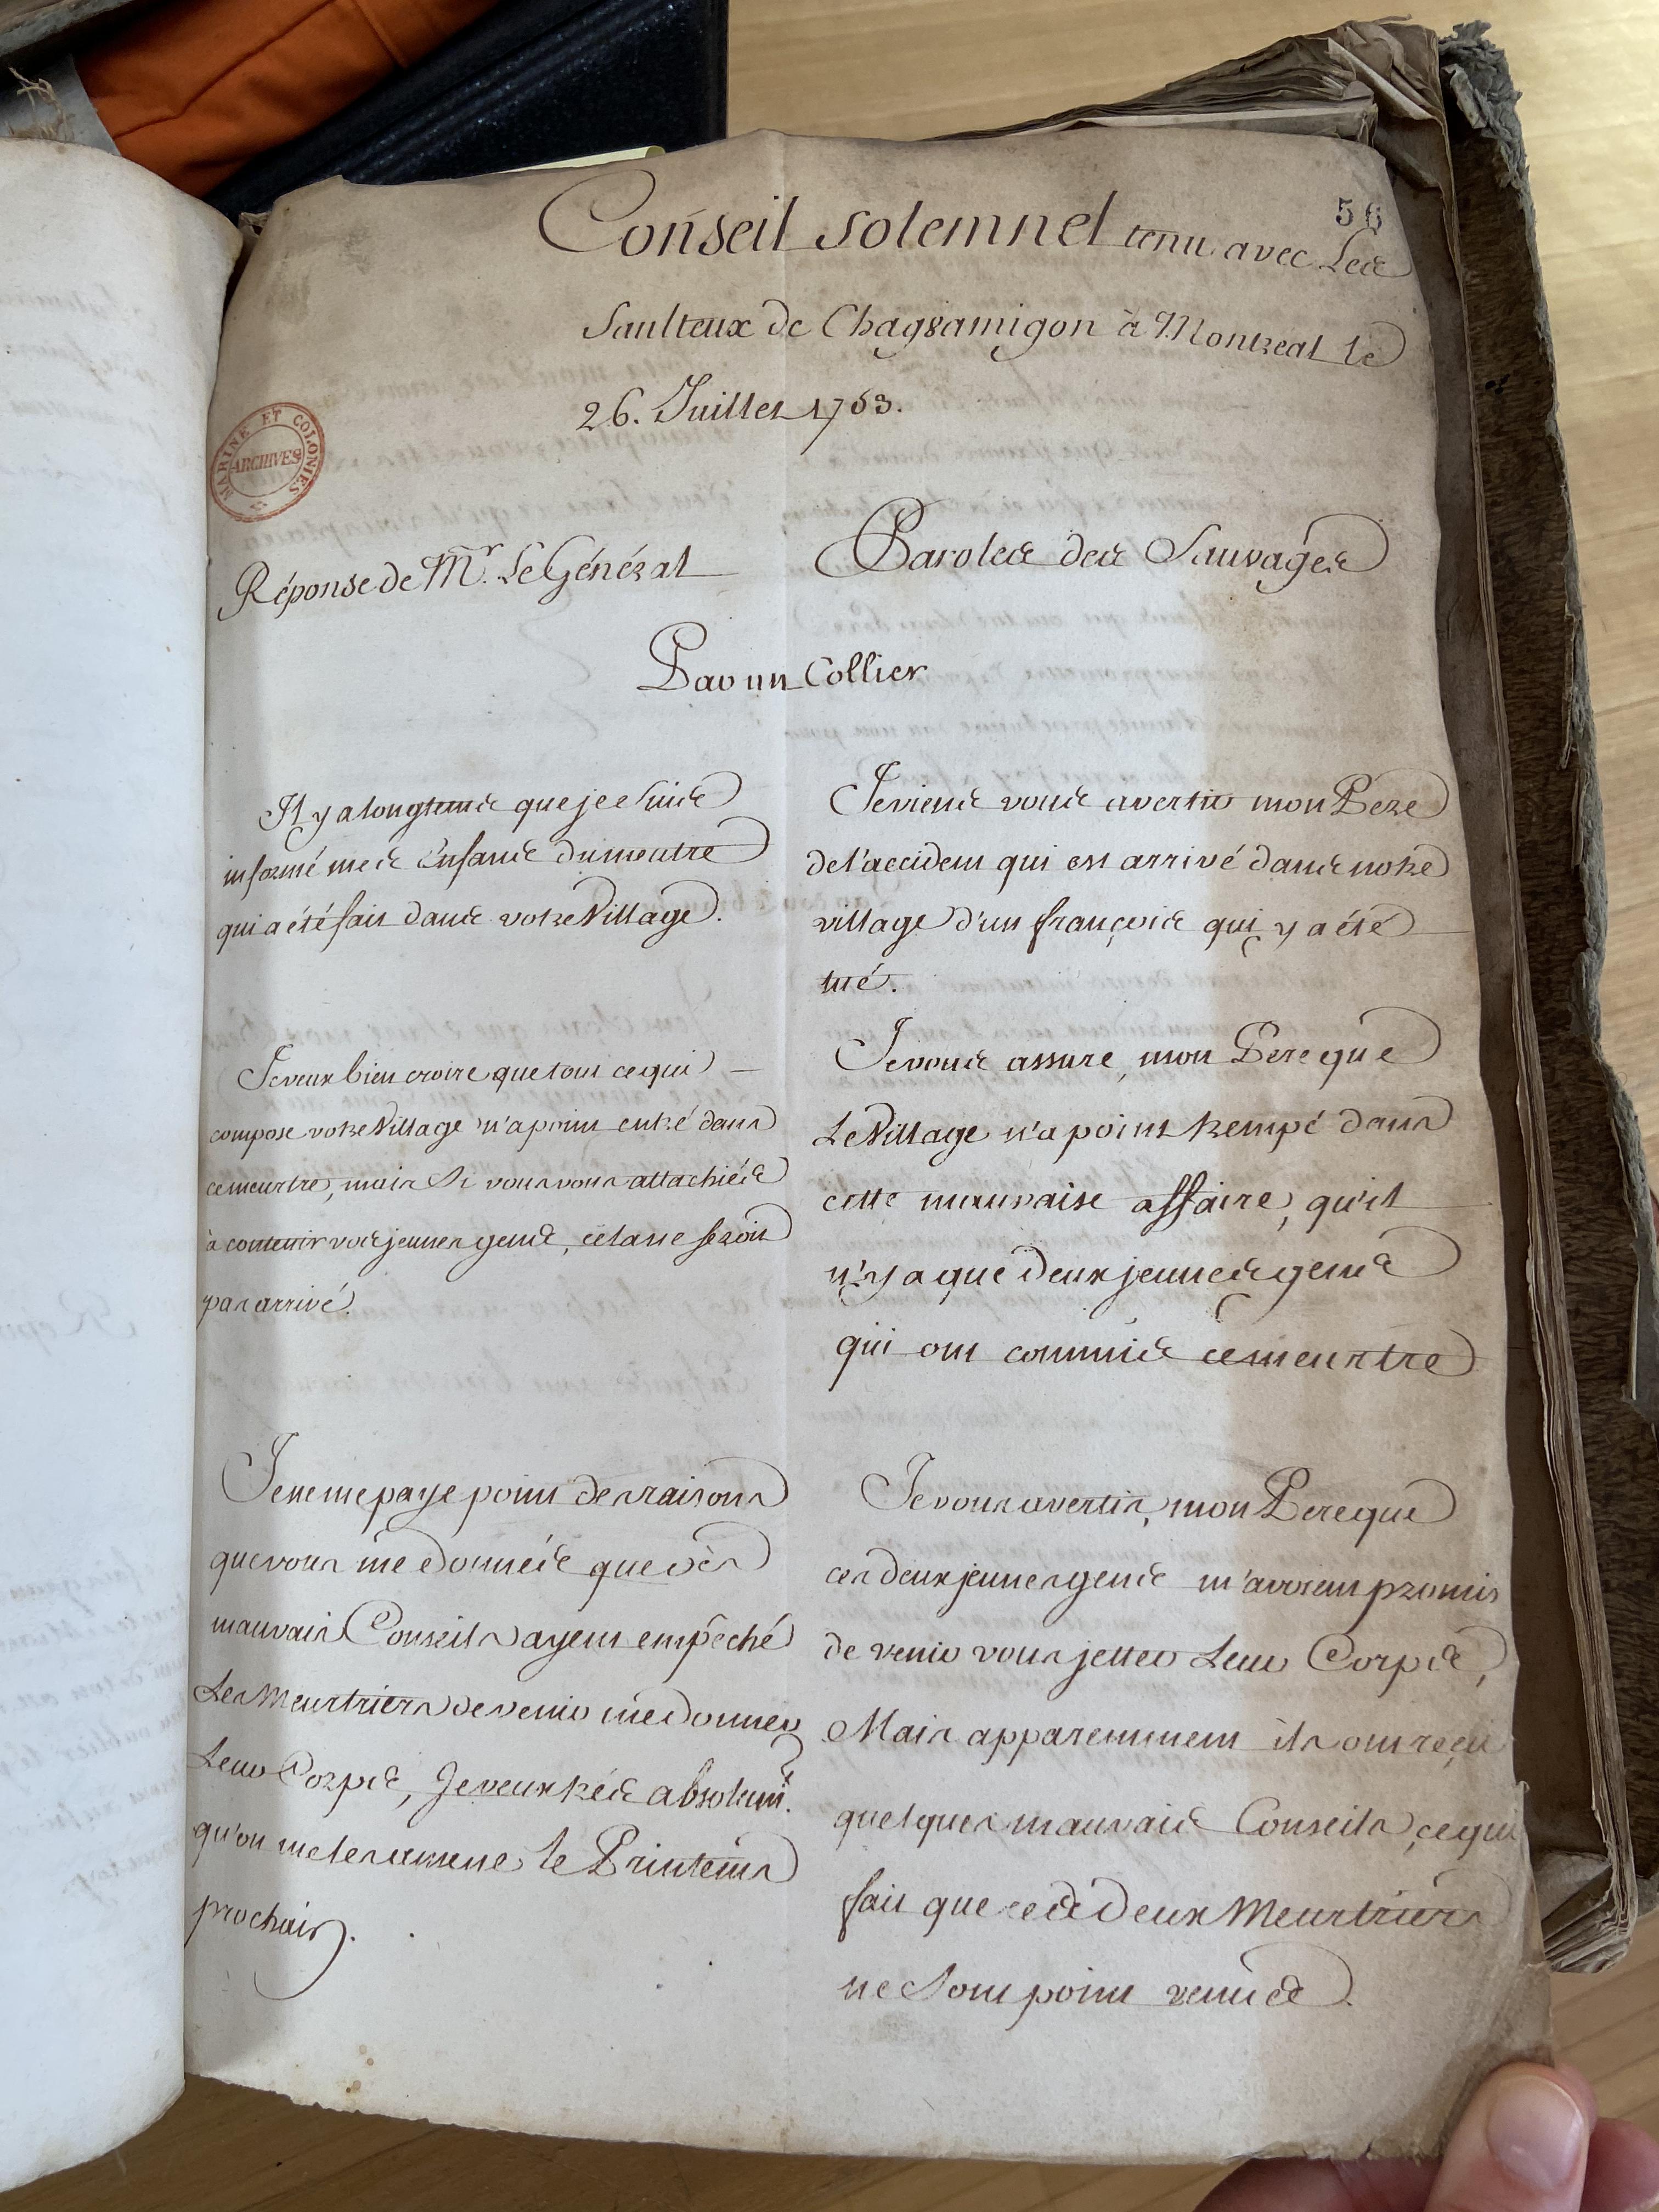 56
Conseil solemnel tenu avec Les
Saulteux de Chag8amigon à Montreal le
26. Juillet 1753.
MARINE ET COLONIES
ARCHIVES
Réponse de Mr. Le Général
Par un Collier
Il y a longtems que je suis
informé mes Enfans du meutre
qui a été fait dans votre Village.
Je veux bien croire que tout ce qui
compose votre Village n'a point entré dans
ce meurtre, mais si vous vous attachiés
à contenir vos jeunes gens, cela ne seroit
pas arrivé.
Je ne me paye point des raisons
que vous me donnés que des
mauvais Conseils ayent empêché
Les Meurtriers de venir me donner
Leur Corps, Je veux trés absolumt.
qu'on me les amene le Printems
prochain.
Paroles des Sauvages
Je viens vous avertir mon Pere
de l'accident qui est arrivé dans notre
village d'un françois qui y a été
tué.
Je vous assure, mon Pere que
Le Village n'a point trempé dans
cette mauvaise affaire, qu'il
n'y a que deux jeunes gens
qui ont commis ce meurtre
Je vous avertis, mon Pere que
ces deux jeunes gens m'avoient promis
de venir vous jetter Leur Corps,
Mais apparemment ils ont reçu
quelques mauvais Conseils, ce qui
fait que ces deux Meurtriers
ne sont point venus.